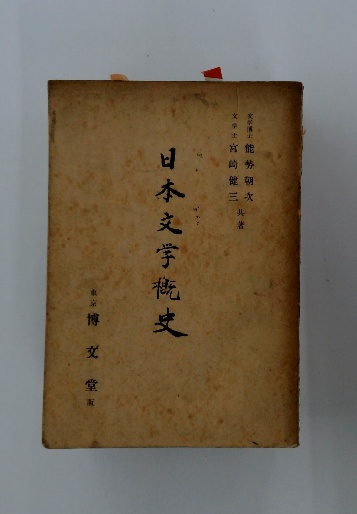 文学博士 能勢朝次
文学士 宮崎健三 共著
日本文学概史
東京 博文堂 版